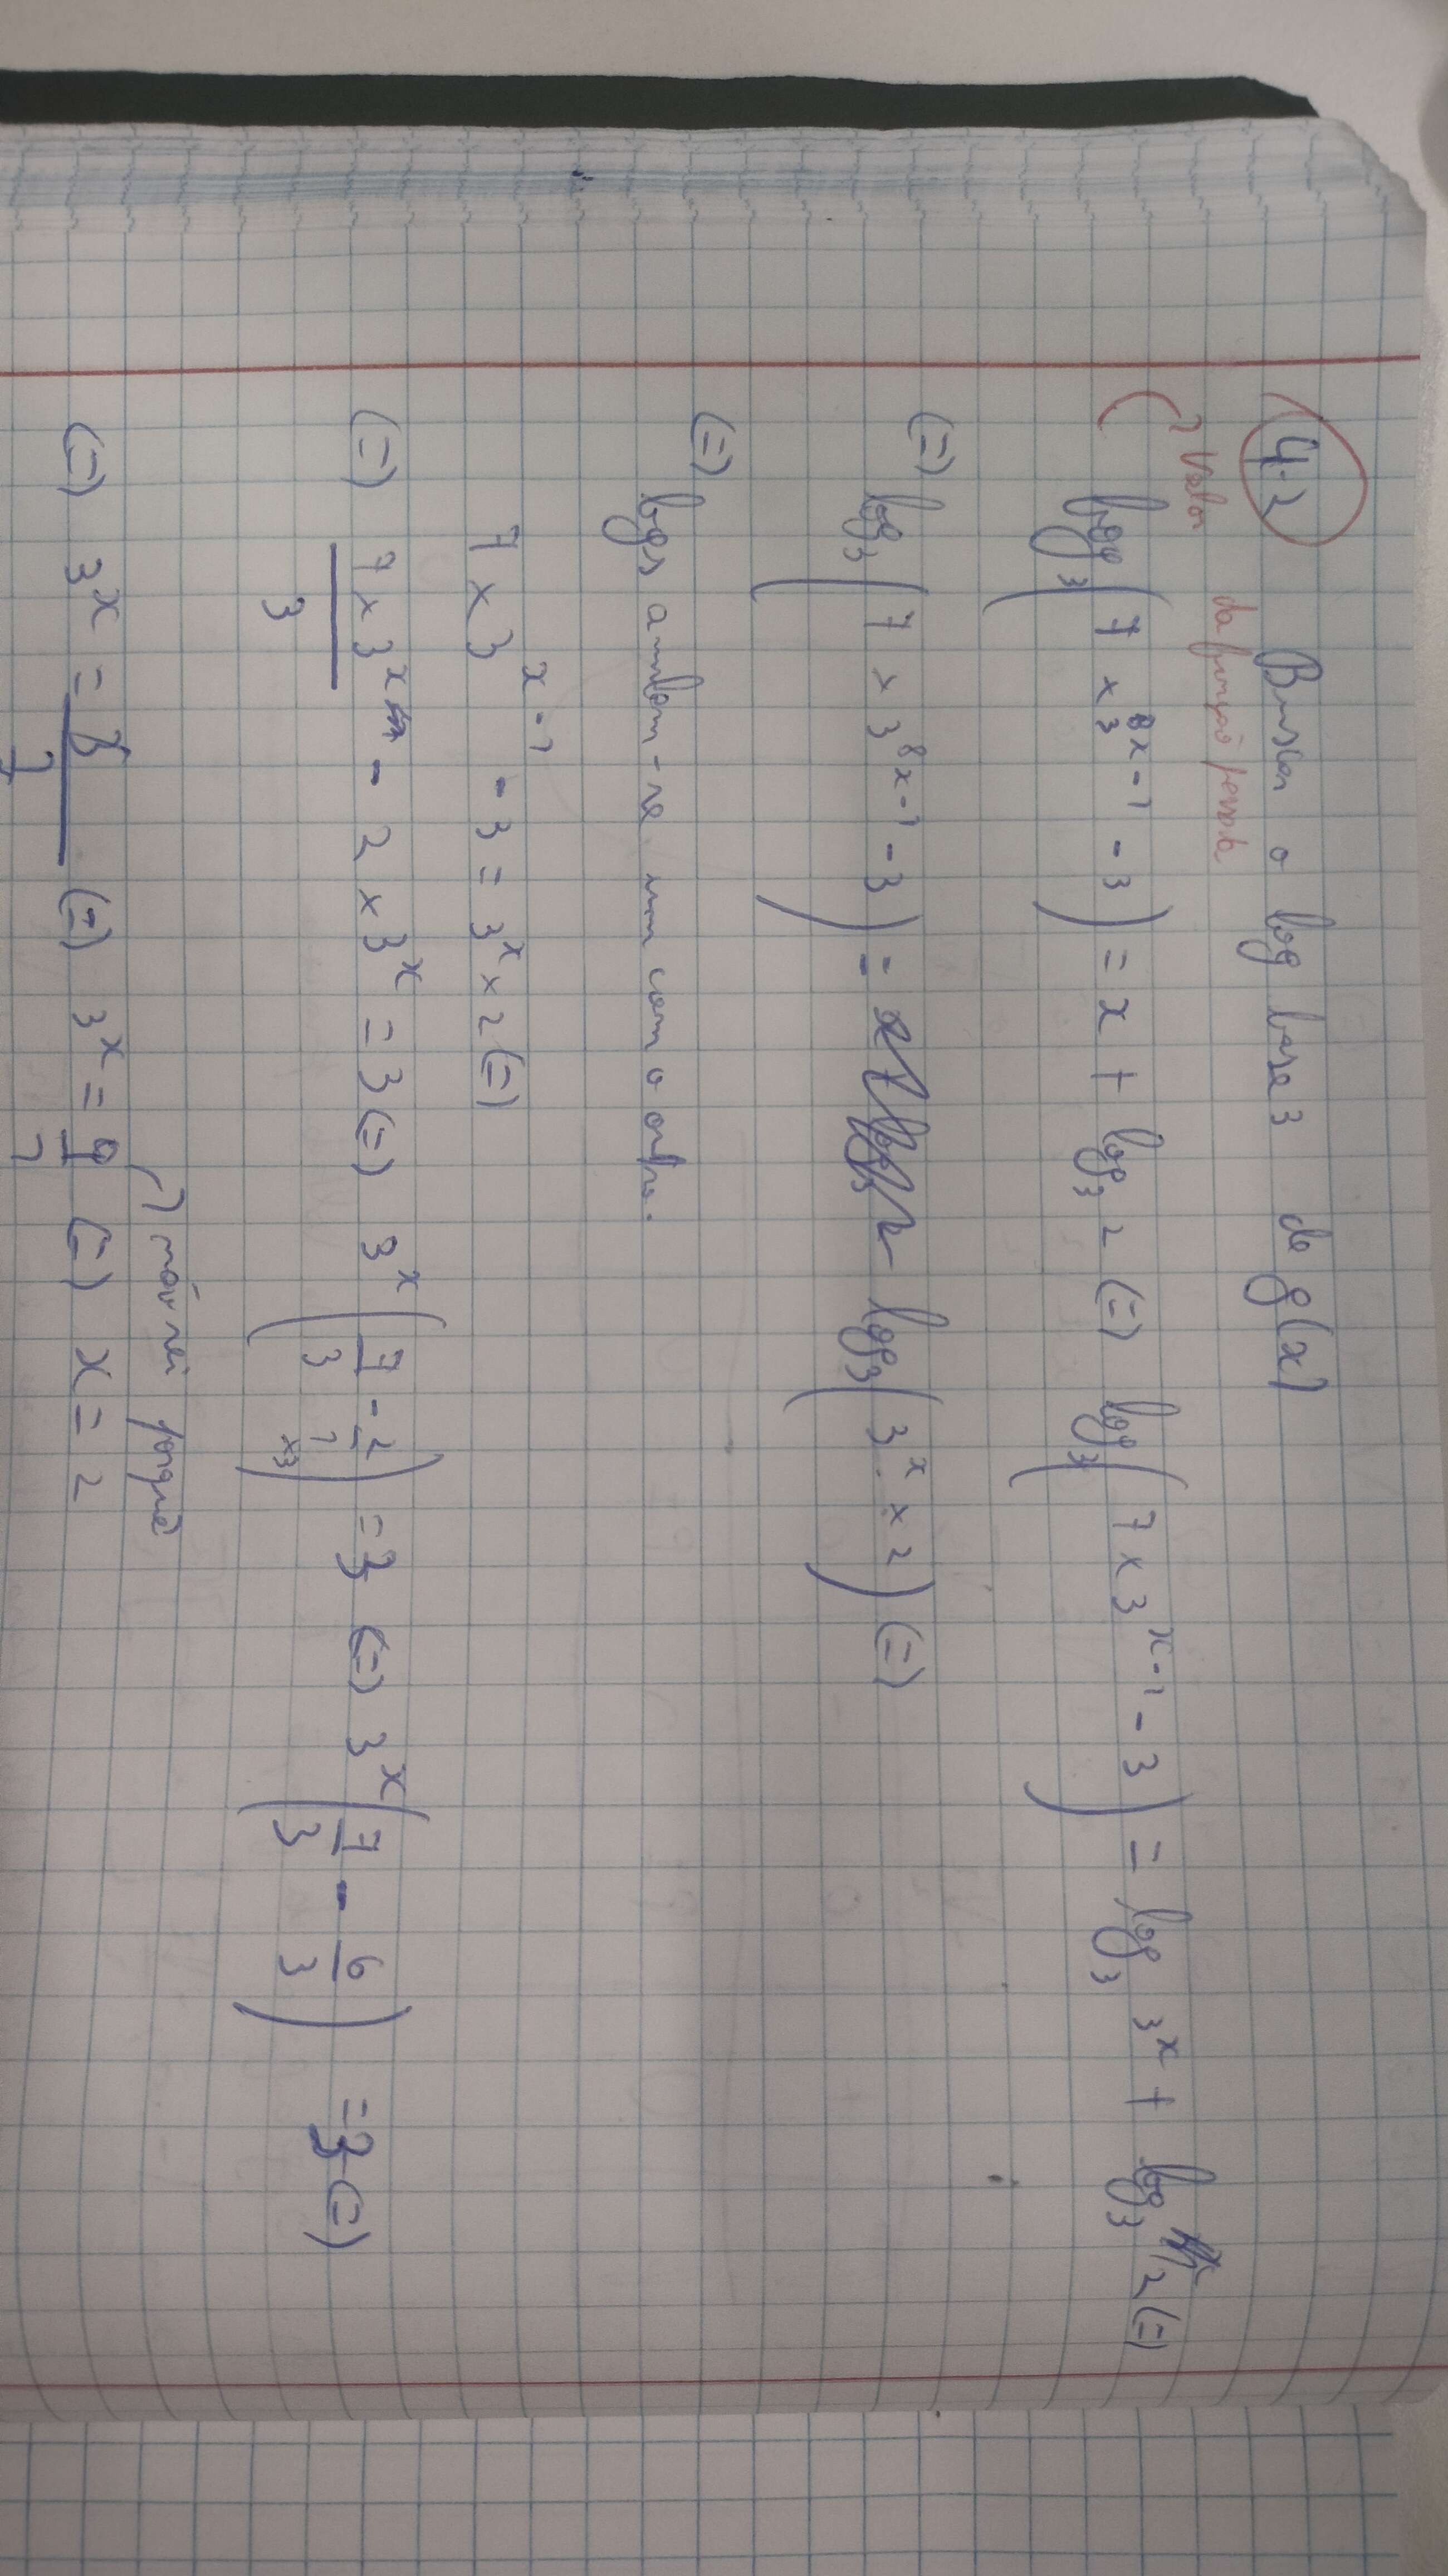 4.2 Buscar o log base 3 de g(x)
Valor da função
log₃(7 × 3^(x-1) - 3) = x + log₃ 2 (=) log₃(7 × 3^(x-1) - 3) = log₃ 3^x + log₃ 2 (=)
(=) log₃(7 × 3^(8x-1) - 3) = log₃(3^x × 2) (=)
(=)
logs anulam-se um com o outro.
7 × 3^(x-1) - 3 = 3^x × 2 (=)
(=) (7 × 3^x)/3 - 2 × 3^x = 3 (=) 3^x (7/3 - 2/1 ×3) = 3 (=) 3^x (7/3 - 6/3) = 3 (=)
não sei porquê
(=) 3^x = 3/ (=) 3^x = 9/1 (=) x = 2